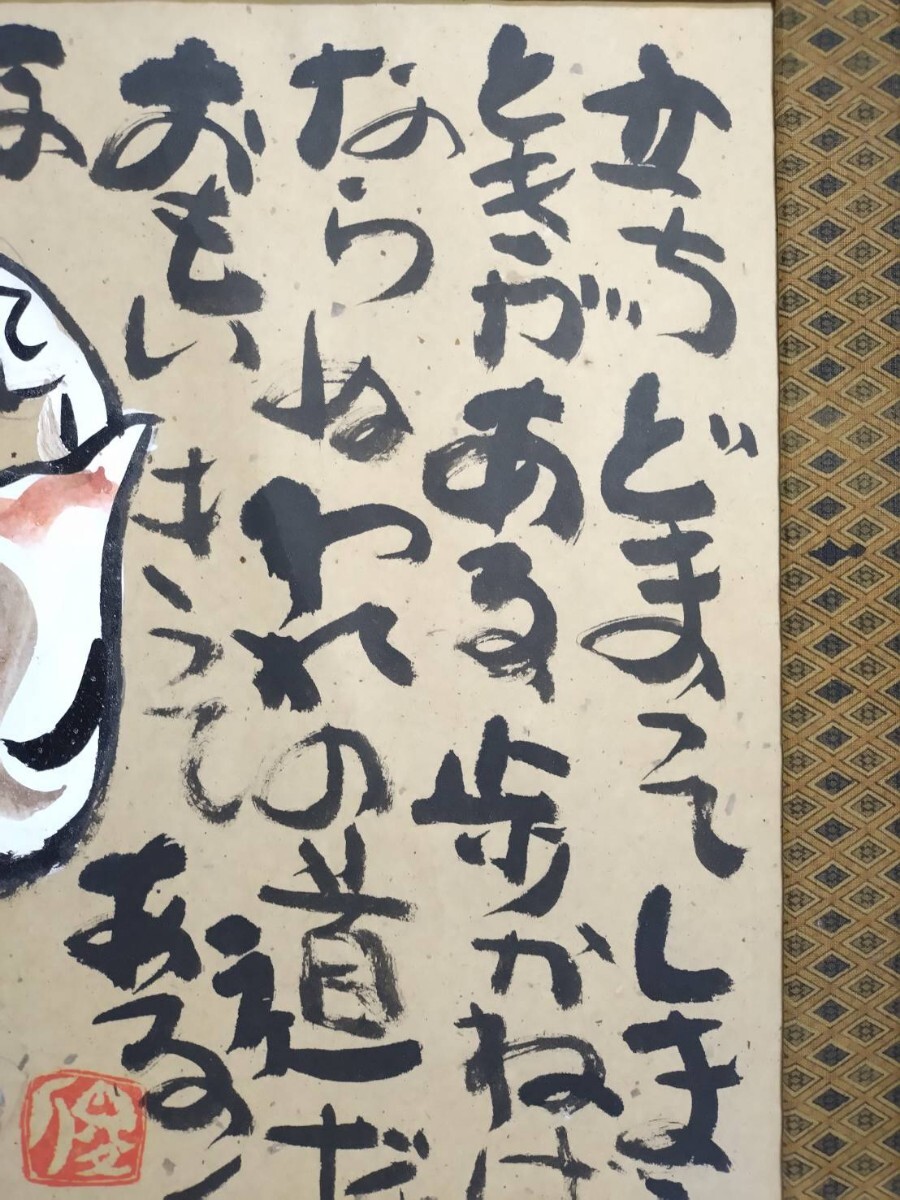 立ちどまってしまう
ときがある歩かねば
ならぬわれの道だ
おもいきってある